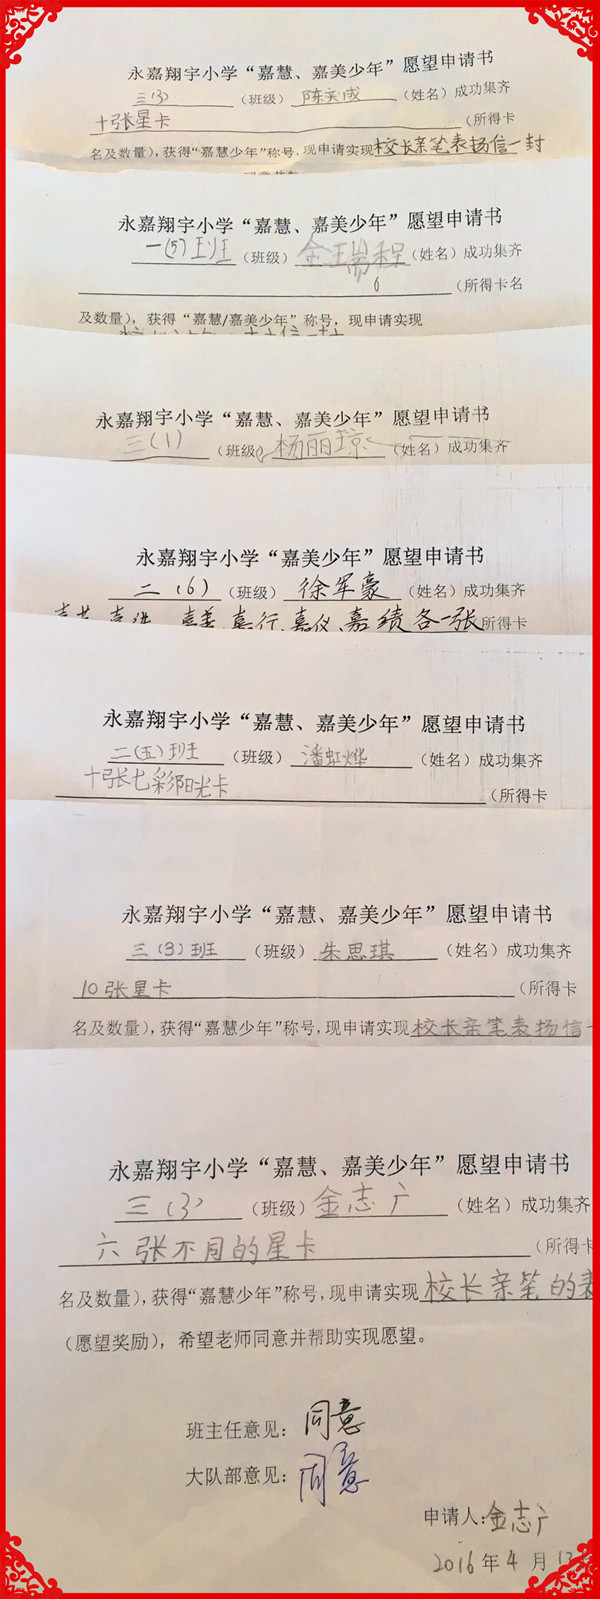 永嘉翔宇小学“嘉慧、嘉美少年”愿望申请书
三(3)(班级)陈奕成(姓名)成功集齐
十张星卡(所得卡
名及数量),获得“嘉慧少年”称号,现申请实现校长亲笔表扬信一封
永嘉翔宇小学“嘉慧、嘉美少年”愿望申请书
一(5)班(班级)金瑒程(姓名)成功集齐
(所得卡名
及数量),获得“嘉慧/嘉美少年”称号,现申请实现
永嘉翔宇小学“嘉慧、嘉美少年”愿望申请书
三(1)(班级)杨丽琼(姓名)成功集齐
永嘉翔宇小学“嘉美少年”愿望申请书
二(6)(班级)徐军豪(姓名)成功集齐
嘉美、嘉行、嘉仪、嘉绩各一张所得卡
永嘉翔宇小学“嘉慧、嘉美少年”愿望申请书
二(五)班(班级)潘虹烨(姓名)成功集齐
十张七彩阳光卡(所得卡
永嘉翔宇小学“嘉慧、嘉美少年”愿望申请书
三(3)班(班级)朱思琪(姓名)成功集齐
10张星卡(所得卡
名及数量),获得“嘉慧少年”称号,现申请实现校长亲笔表扬信一
永嘉翔宇小学“嘉慧、嘉美少年”愿望申请书
三(3)(班级)金志广(姓名)成功集齐
六张不同的星卡(所得卡
名及数量),获得“嘉慧少年”称号,现申请实现校长亲笔的表
(愿望奖励),希望老师同意并帮助实现愿望。
班主任意见:同意
大队部意见:同意
申请人:金志广
2016年4月13